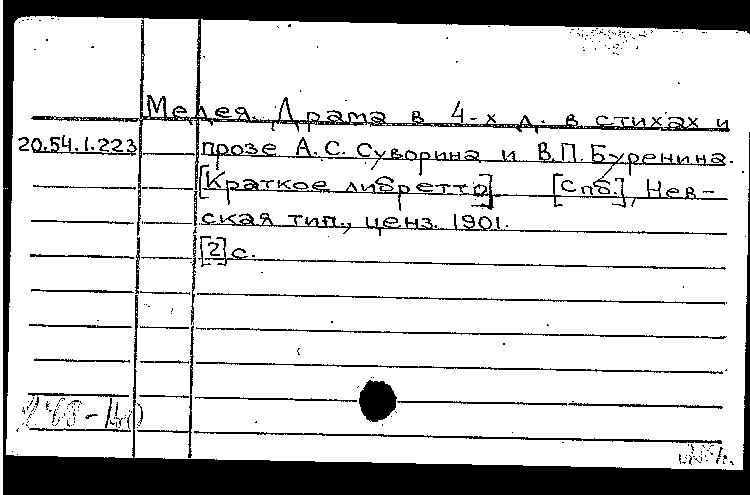 Медея. Драма в 4-х д. в стихах и
20.54.1.223 прозе А.С. Суворина и В.П. Буренина.
[Краткое либретто]. [Спб.], Нев-
ская тип., ценз. 1901.
[2] с.